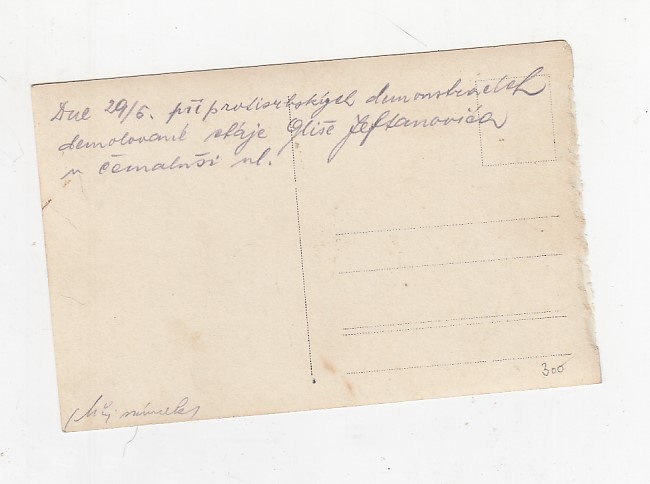 Dne 29/6. při protisrbských demonstracích
demolované stáje Gliše Jeftanovića
v čemaluši ul.
300
(Můj snímek)